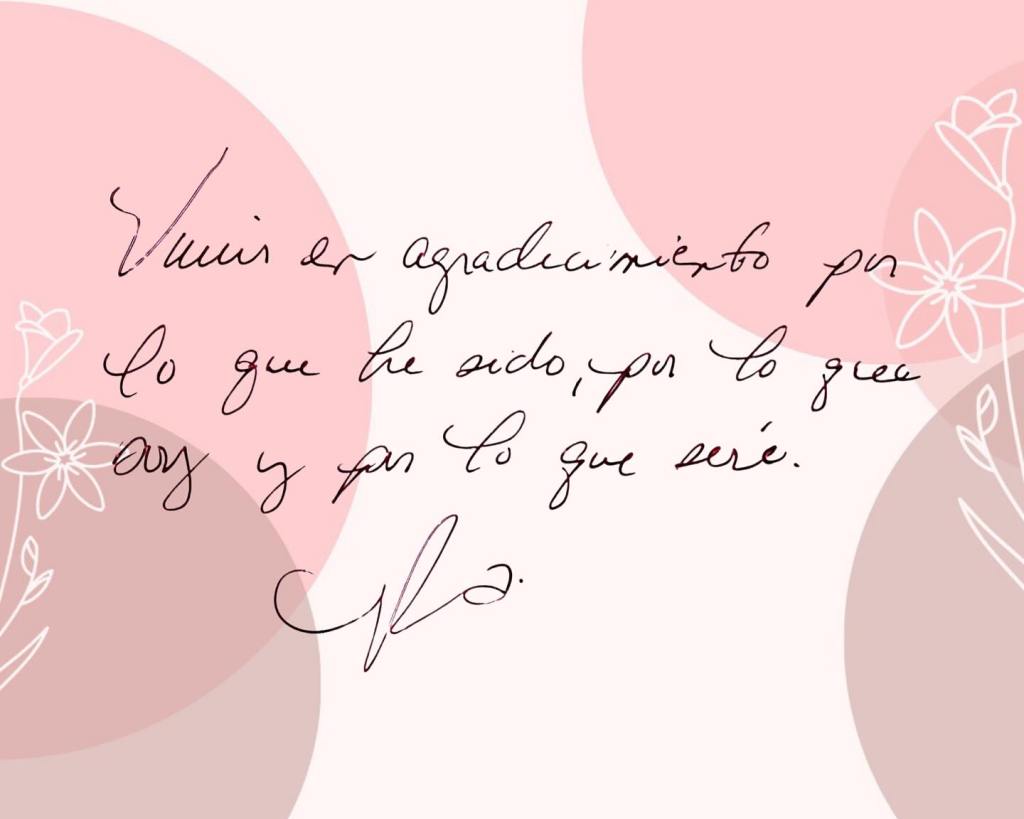 Vivir en agradecimiento por
lo que he sido, por lo que
soy y por lo que seré.